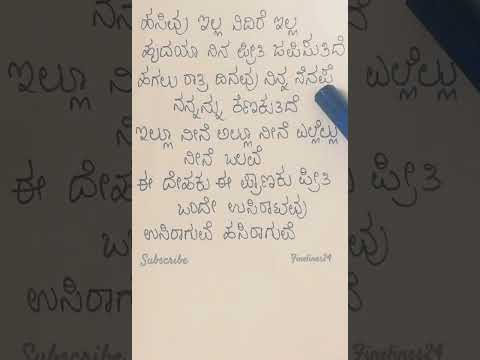 ಹಸಿವು ಇಲ್ಲ ನಿದಿರೆ ಇಲ್ಲ
ಹೃದಯಾ ನಿನ ಪ್ರೀತಿ ಜಪಿಸುತಿದೆ
ಹಗಲು ರಾತ್ರಿ ದಿನವು ನಿನ್ನ ನೆನಪೆ
ನನ್ನನ್ನು ಕೆಣಕುತಿದೆ
ಇಲ್ಲೂ ನೀನೆ ಅಲ್ಲೂ ನೀನೆ ಎಲ್ಲೆಲ್ಲು
ನೀನೆ ಒಲವೆ
ಈ ದೇಹಕು ಈ ಪ್ರಾಣಕು ಪ್ರೀತಿ
ಒಂದೇ ಉಸಿರಾಟವು
ಉಸಿರಾಗುವೆ ಹಸಿರಾಗುವೆ
Subscribe Finelines24